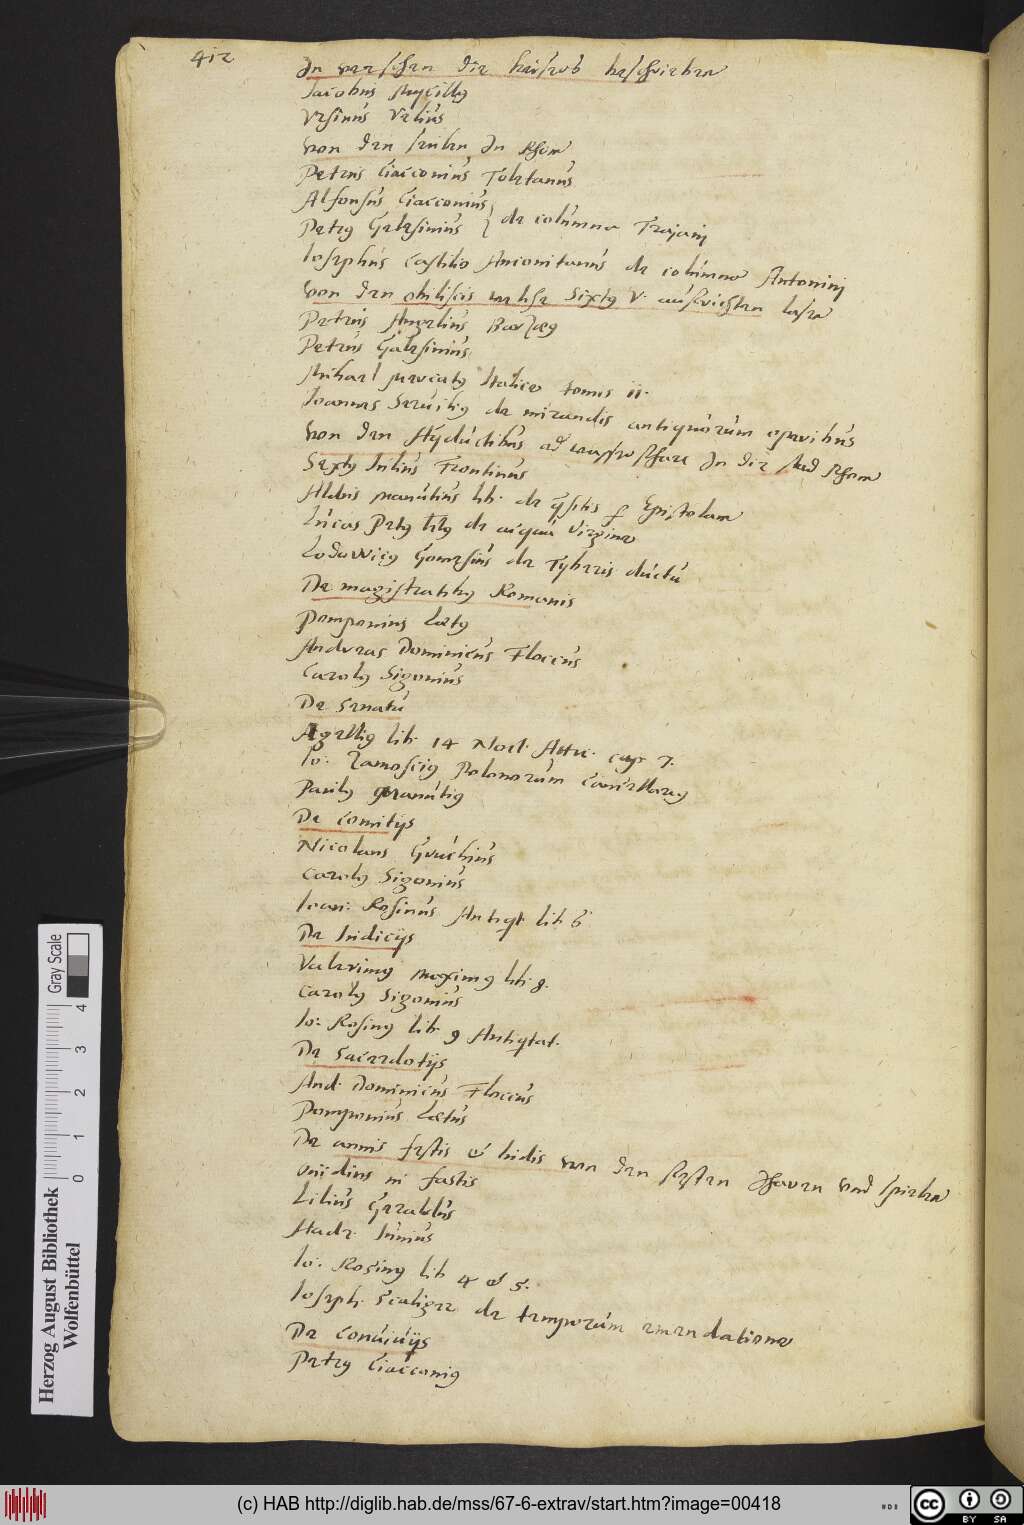 412
In verschen die keisers beschrieben
Jacobus Mycillus
Ursinus Velius
von den seulen In Rhom
Petrus Ciacconius Toletanus
Alfonsus Ciacconius
Petrus Galesinius } de columna Trajani
Iosephus Castilio Anconitanus de columna Antonini
von den obiliscis welche Sixtus V. aufrichten lasen
Petrus Angelius Bargæus
Petrus Galesinius
Michael Mercatus Italice tomis ii.
Ioannes Servilius de mirandis antiquorum operibus
von den Aqductibus od wasser In die stad Rhom
Sextus Iulius Frontinus
Aldus Manutius lib. de qsitis p Epistolam
Lucas Petus de acqua Virgine
Lodowicus Gomesius de Tyberis
De magistratibus Romanis
Pomponius Lætus
Andreas Dominicus Floccus
Carolus Sigonius
De Senatu
Agellius lib. 14 Noct. Attic. cap. 7.
Io: Zamoscius Polonorum Cancellarius
Paulus Manutius
De comitijs
Nicolaus Gruchius
Carolus Sigonius
Ioan: Rosinus Antiqt. lib 6
De Iudicijs
Valerius Maximus lib. 8.
Carolus Sigonius
Io: Rosinus lib. 9 Antiqtat.
De Sacerdotijs
And. Dominicus Floccus
Pomponius Lætus
De annis festis et ludis von den festen Jharen und spielen
Ovidius in fastis
Lilius Geraldus
Hadr. Iunius
Io: Rosinus lib 4 et 5.
Ioseph. Scaliger de temporum emendatione
De Conviuijs
Petrus Ciacconius
Gray Scale
0 1 2 3 4
Herzog August Bibliothek
Wolfenbüttel
(c) HAB http://diglib.hab.de/mss/67-6-extrav/start.htm?image=00418
cc BY SA